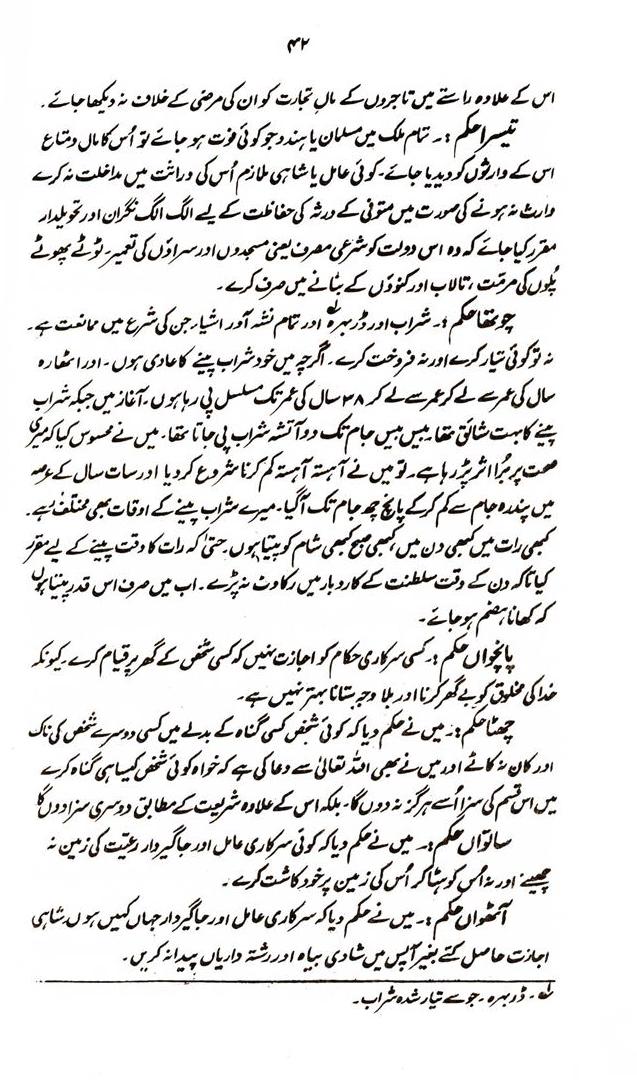 ۴۲
اس کے علاوہ راستے میں تاجروں کے مالِ تجارت کو ان کی مرضی کے خلاف نہ دیکھا جائے۔
تیسرا حکم :۔ تمام ملک میں مسلمان یا ہندو جو کوئی فوت ہو جائے تو اُس کا مال و متاع
اس کے وارثوں کو دیدیا جائے۔ کوئی عامل یا شاہی ملازم اُس کی وراثت میں مداخلت نہ کرے
وارث نہ ہونے کی صورت میں متوفی کے ورثہ کی حفاظت کے لیے الگ الگ نگران اور تحویلدار
مقرر کیا جائے کہ وہ اس دولت کو شرعی مصرف یعنی مسجدوں اور سراؤں کی تعمیر۔ ٹوٹے پھوٹے
پُلوں کی مرمّت، تالاب اور کنوؤں کے بنانے میں صرف کرے۔
چوتھا حکم :۔ شراب اور ڈربہرہ۱؎ اور تمام نشہ آور اشیاء جن کی شرع میں ممانعت ہے۔
نہ تو کوئی تیار کرے اور نہ فروخت کرے۔ اگرچہ میں خود شراب پینے کا عادی ہوں۔ اور اٹھارہ
سال کی عمر سے لے کر عمر سے لے کر ۳۸ سال کی عمر تک مسلسل پی رہا ہوں۔ آغاز میں جبکہ شراب
پینے کا بہت شائق تھا۔ بیس بیس جام تک دو آتشہ شراب پی جاتا تھا۔ میں نے محسوس کیا کہ میری
صحت پر بُرا اثر پڑ رہا ہے۔ تو میں نے آہستہ آہستہ کم کرنا شروع کر دیا اور سات سال کے عرصہ
میں پندرہ جام سے کم کر کے پانچ چھ جام تک آگیا۔ میرے شراب پینے کے اوقات بھی مختلف ہے۔
کبھی رات میں کبھی دن میں، کبھی صبح کبھی شام کو پیتا ہوں۔ حتیٰ کہ رات کا وقت پینے کے لیے مقرر
کیا تاکہ دن کے وقت سلطنت کے کاروبار میں رکاوٹ نہ پڑے۔ اب میں صرف اس قدر پیتا ہوں
کہ کھانا ہضم ہو جائے۔
پانچواں حکم :۔ کسی سرکاری حکام کو اجازت نہیں کہ کسی شخص کے گھر پر قیام کرے۔ کیونکہ
خدا کی مخلوق کو بے گھر کرنا اور بلا وجہ ستانا بہتر نہیں ہے۔
چھٹا حکم :۔ میں نے حکم دیا کہ کوئی شخص کسی گناہ کے بدلے میں کسی دوسرے شخص کی ناک
اور کان نہ کاٹے اور میں نے بھی اللہ تعالیٰ سے دعا کی ہے کہ خواہ کوئی شخص کیسا ہی گناہ کرے
میں اس قسم کی سزا اُسے ہرگز نہ دوں گا۔ بلکہ اس کے علاوہ شریعت کے مطابق دوسری سزا دوں گا
ساتواں حکم :۔ میں نے حکم دیا کہ کوئی سرکاری عامل اور جاگیردار رعیّت کی زمین نہ
چھینے اور نہ اُس کو ہٹا کر اُس کی زمین پر خود کاشت کرے۔
آٹھواں حکم :۔ میں نے حکم دیا کہ سرکاری عامل اور جاگیردار جہاں کہیں ہوں شاہی
اجازت حاصل کئے بغیر آپس میں شادی بیاہ اور رشتہ داریاں پیدا نہ کریں۔
۱؎۔ ڈربہرہ۔ جو سے تیار شدہ شراب۔